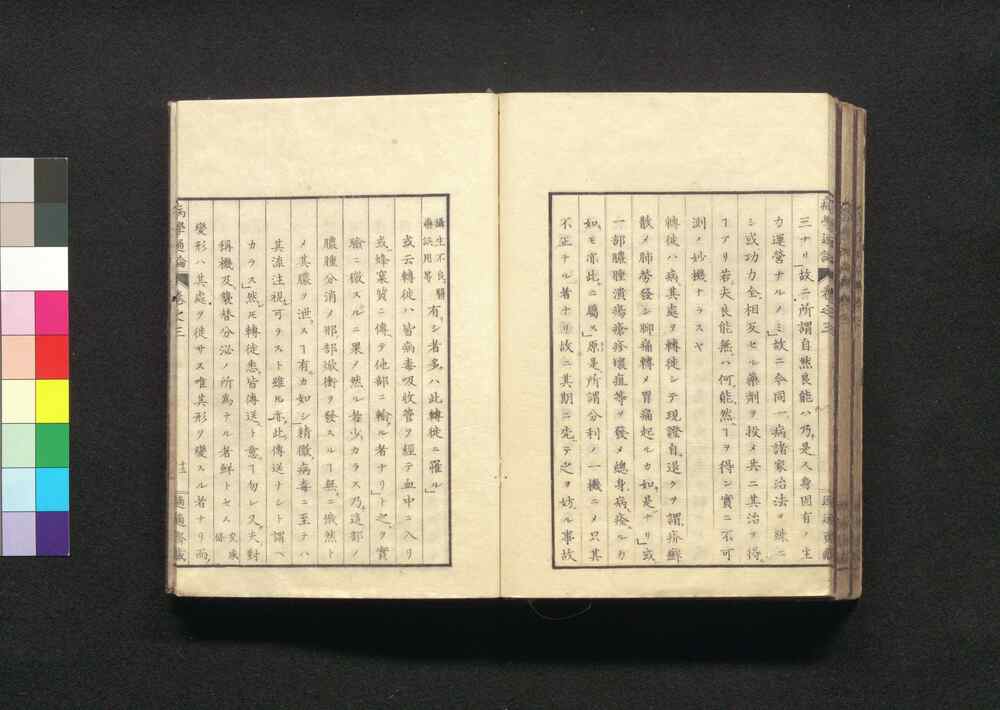 三ナリ」故ニ所謂自然良能ハ乃是人身固有ノ生
力運營ナルノミ」故ニ令同一病諸家治法ヲ殊ニ
シ或功力全相反セル藥劑ヲ投メ共ニ其治ヲ得
ヿアリ若夫良能無ハ何能然ヿヲ得ン實ニ不可
測ノ妙機ナラスヤ
轉徙ハ病其處ヲ轉徙シテ現證自退クヲ謂疥癬
散メ肺勞發シ脚痛轉メ胃痛起ルカ如是ナリ」或
一部膿腫潰瘍瘡疹壞疽等ヲ發メ總身病瘥ルカ
如モ亦此ニ屬ス」原是所謂分利ノ一機ニメ只其
不正ナル者ナリ故ニ其期ニ先テ之ヲ妨ル事故
攝生不良醫
療誤用等
有シ者多ハ此轉徙ニ罹ル」
或云轉徙ハ皆病毒吸收管ヲ經テ血中ニ入リ
或蜂窠質ニ傳テ他部ニ輸ル者ナリト」之ヲ實
驗ニ徴スルニ果ノ然ル者少カラス乃這部ノ
膿腫分消メ那部焮衝ヲ發スルヿ無ニ俄然ト
メ其膿ヲ泄スヿ有カ如シ」精微病毒ニ至テハ
其流注視可ラスト雖ルハ亦此傳送ナシト謂ヘ
カラス」然モ轉徙悉皆傳送ト意ヿ勿レ又夫對
稱機及襲替分泌ノ所爲ナル者鮮トセス
變形ハ其處ヲ徙サス唯其形ヲ變スル者ナリ而
病學通論
卷之三
十三
適適齋藏